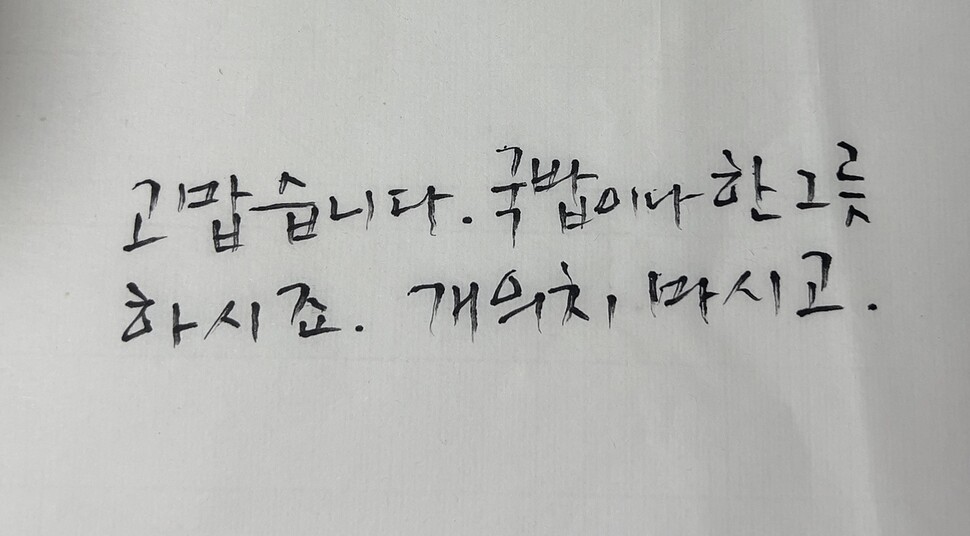 고맙습니다. 국밥이나 한 그릇
하시죠. 개의치 마시고.